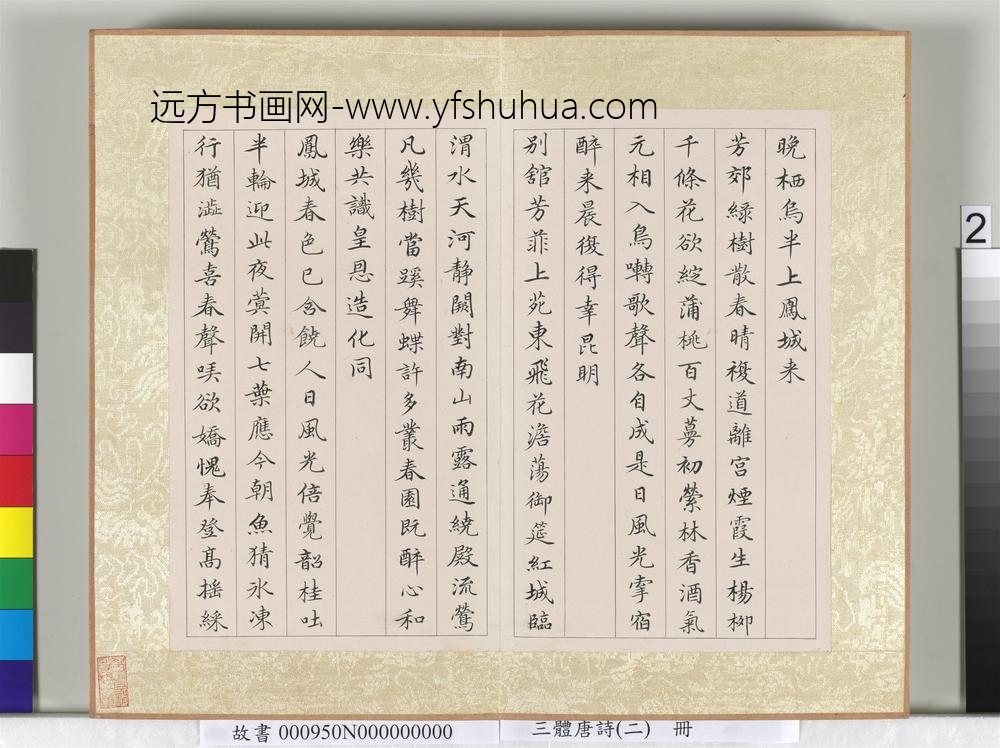 远方书画网-www.yfshuhua.com
晚栖烏半上鳳城来
芳郊緑樹散春晴複道離宮煙霞生楊柳
千條花欲綻蒲桃百丈蔓初縈林香酒氣
元相入鳥囀歌聲各自成是日風光寧宿
醉来晨復得幸昆明
別舘芳菲上苑東飛花澹蕩御筵紅城臨
渭水天河静闕對南山雨露通繞殿流鶯
凡幾樹當蹊舞蝶許多叢春園既醉心和
樂共識皇恩造化同
鳳城春色已含饒人日風光倍覺韶桂吐
半輪迎此夜蓂開七葉應今朝魚猜氷凍
行猶澁鶯喜春聲咲欲嬌愧奉登髙摇綵
2
故書 000950N000000000
三體唐詩(二) 冊